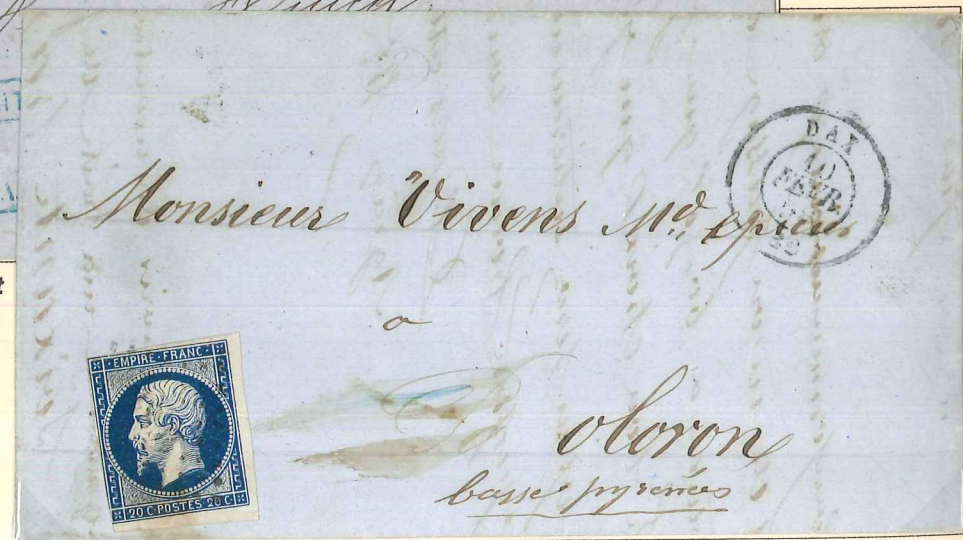 DAX
10
FEVR.
Monsieur Vivens Md. epicier
a
oloron
basse pyrénées
EMPIRE FRANC
20 C POSTES 20 C